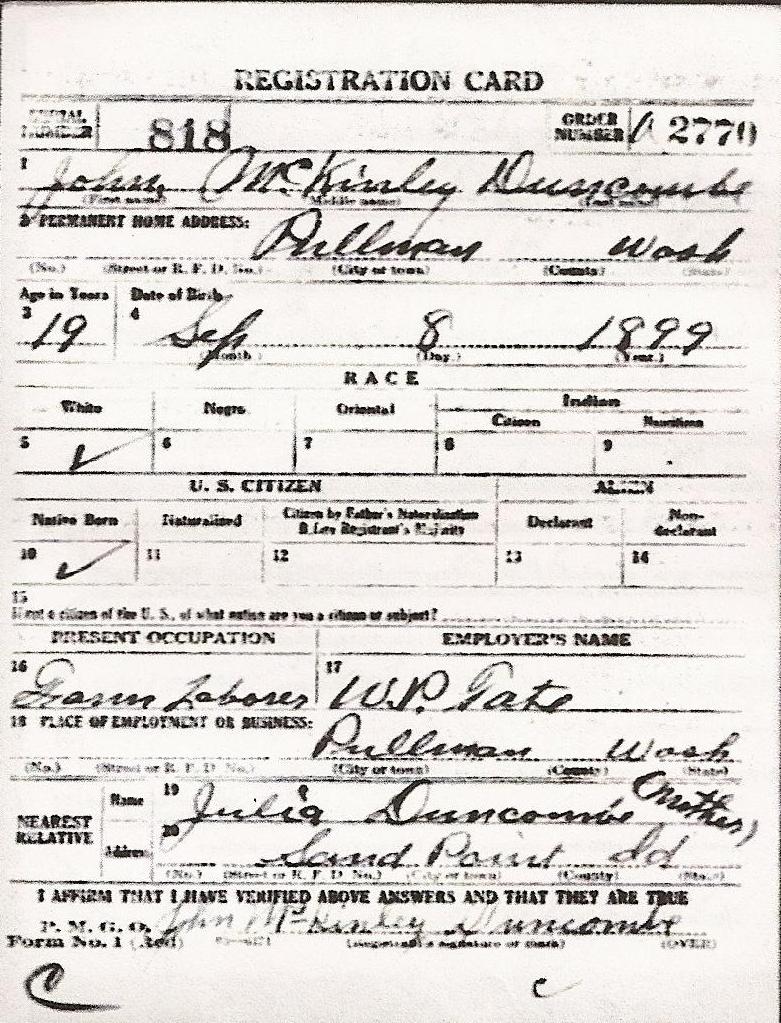 REGISTRATION CARD
SERIAL NUMBER 818 ORDER NUMBER A 2770
1 John McKinley Duncombe
(First name) (Middle name) (Last name)
2 PERMANENT HOME ADDRESS: Pullman Wash
(No.) (Street or R. F. D. No.) (City or town) (County) (State)
Age in Years Date of Birth
3 19 4 Sep 8 1899
(Month.) (Day.) (Year.)
RACE
White Negro Oriental Indian
Citizen Noncitizen
5 ✓ 6 7 8 9
U. S. CITIZEN ALIEN
Native Born Naturalized Citizen by Father's Naturalization Before Registrant's Majority Declarant Non-declarant
10 ✓ 11 12 13 14
15
If not a citizen of the U. S., of what nation are you a citizen or subject?
PRESENT OCCUPATION EMPLOYER'S NAME
16 Farm Laborer 17 W.P. Tate
18 PLACE OF EMPLOYMENT OR BUSINESS:
Pullman Wash
(No.) (Street or R. F. D. No.) (City or town) (County) (State)
NEAREST RELATIVE Name 19 Julia Duncombe (Mother)
Address 20 Sand Point Id
(No.) (Street or R. F. D. No.) (City or town) (County) (State)
I AFFIRM THAT I HAVE VERIFIED ABOVE ANSWERS AND THAT THEY ARE TRUE
P. M. G. O. John McKinley Duncombe
Form No. 1 (Red) (Registrant's signature or mark) (OVER)
C c